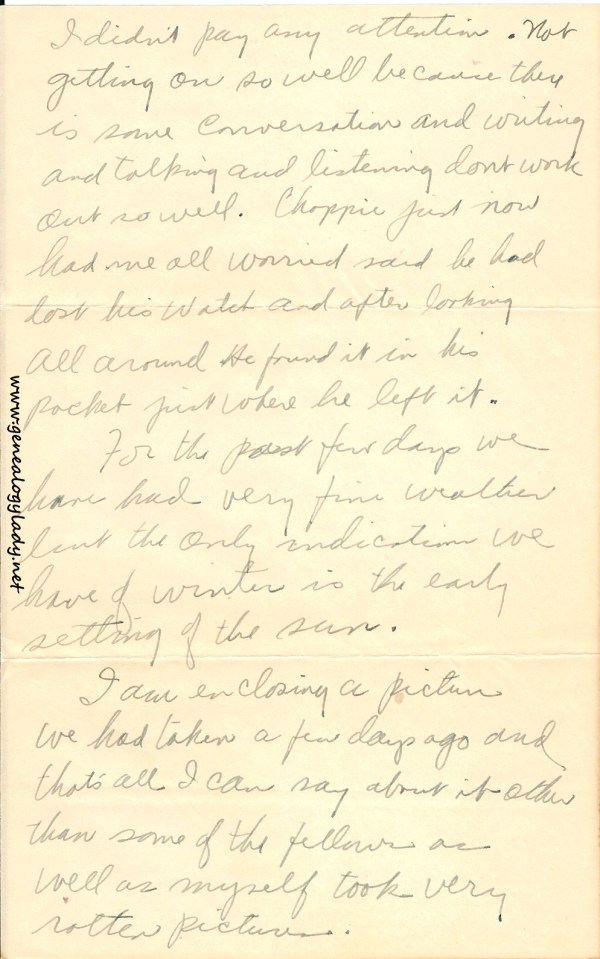 I didn't pay any attention. Not
getting on so well because there
is some conversation and writing
and talking and listening dont work
out so well. Chappie just now
had me all worried said he had
lost his watch and after looking
all around He found it in his
pocket just where he left it.
For the past few days we
have had very fine weather
but the only indication we
have of winter is the early
setting of the sun.
I am enclosing a picture
we had taken a few days ago and
that's all I can say about it other
than some of the fellows as
well as myself took very
rotten pictures.
www.genealogylady.net